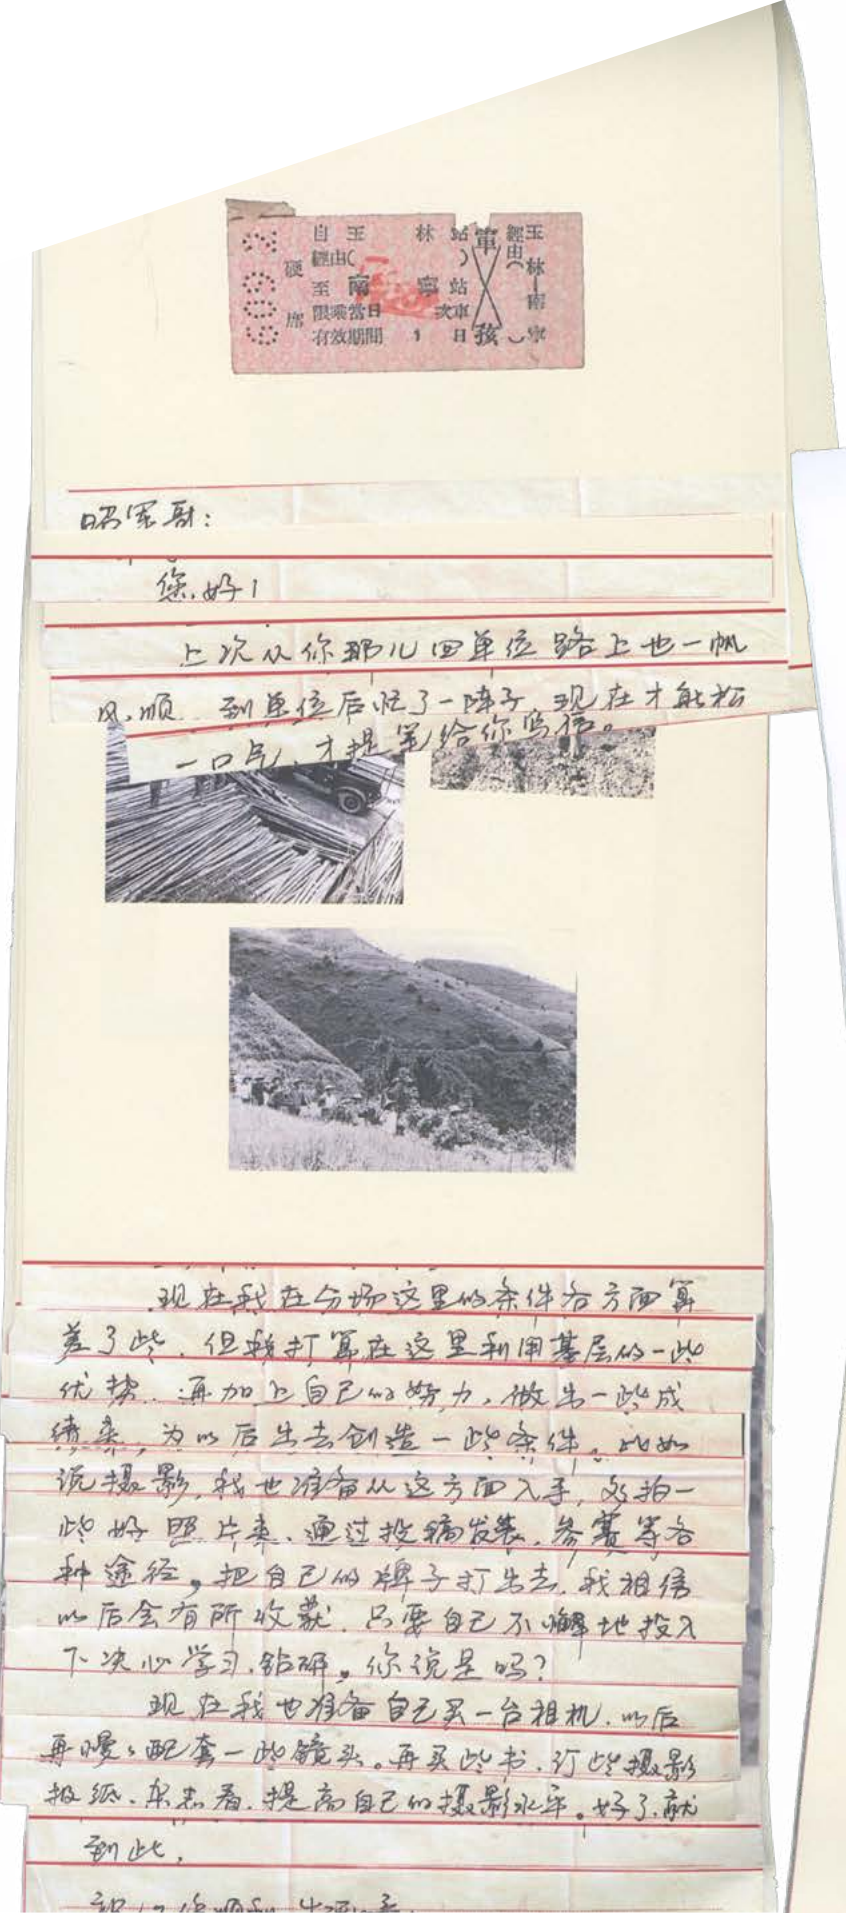 自玉林站
經由( )
至南寧站
限乘當日 次車
有效期間 1 日
硬席
軍務
玉林—南寧
經由( )
昭军哥：
您好！
上次从你那儿回单位路上也一帆
风顺 到单位后忙了一阵子 现在才能松
一口气，才提笔给你写信。
现在我在分场这里的条件各方面算
差了些，但我打算在这里利用基层的一些
优势，再加上自己的努力，做出一些成
绩来，为以后出去创造一些条件。比如
说摄影，我也准备从这方面入手，多拍一
些好照片来，通过投稿发表，参赛等各
种途径，把自己的牌子打出去，我相信
以后会有所收获，只要自己不懈地投入
下决心学习，钻研。你说是吗？
现在我也准备自己买一台相机，以后
再慢慢配套一些镜头。再买些书，订些摄影
报纸、杂志看，提高自己的摄影水平。好了，就
到此，